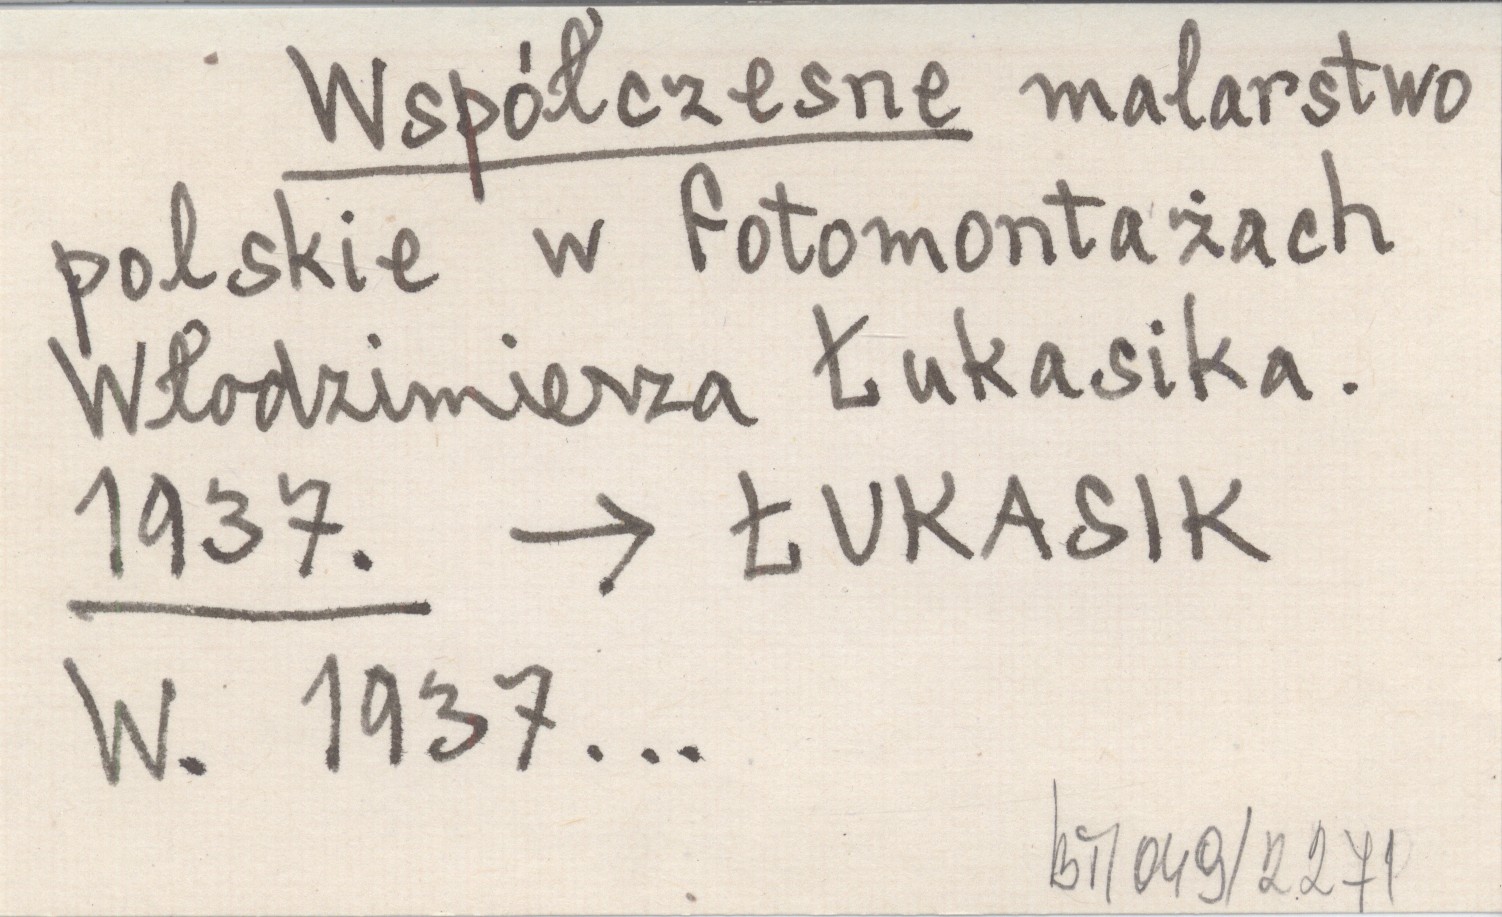 Współczesne malarstwo
polskie w fotomontażach
Włodzimierza Łukasika.
1937. → ŁUKASIK
W. 1937...
049/2271